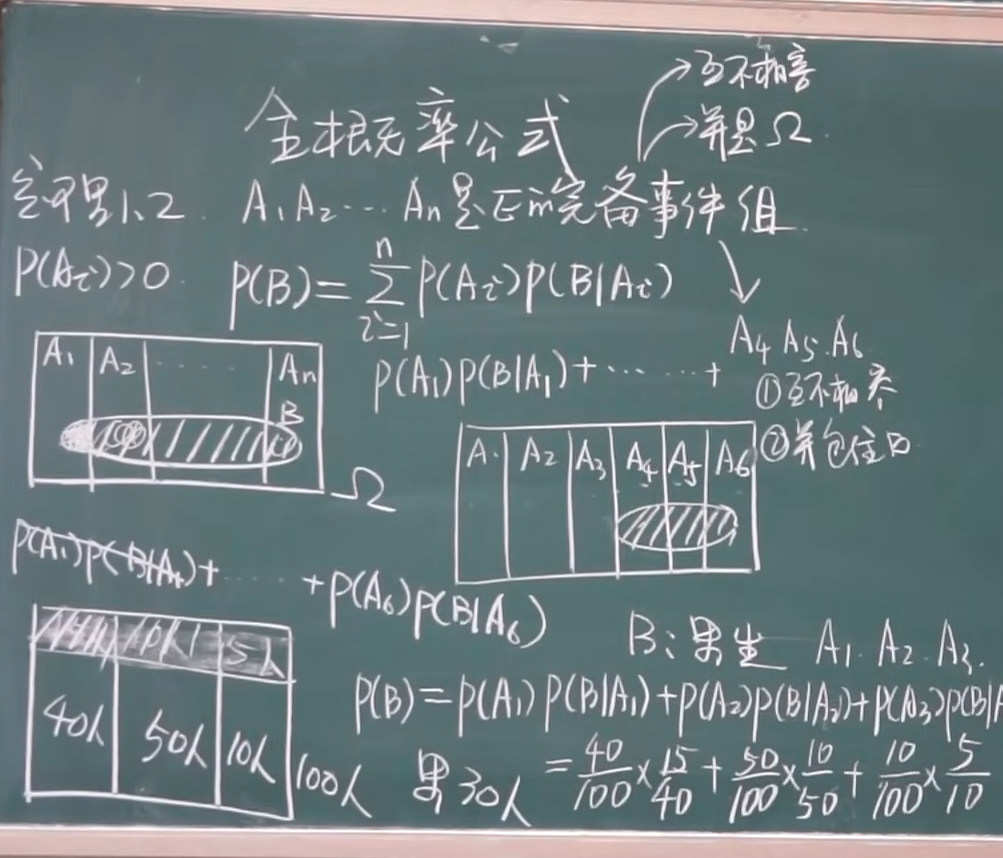 互不相容
并是Ω
全概率公式
定理1.2 A₁A₂…An是E的完备事件组
P(Aᵢ)>0. P(B)=∑ᵢ₌₁ⁿP(Aᵢ)P(B|Aᵢ)
P(A₁)P(B|A₁)+……+
A₄ A₅ A₆
①互不相容
②并包住B
A₁ A₂ …… An
B
Ω
A₁ A₂ A₃ A₄ A₅ A₆
P(A₁)P(B|A₁)+……+P(A₆)P(B|A₆)
10人 5人
40人 50人 10人
100人 男30人
B:男生 A₁ A₂ A₃.
P(B)=P(A₁)P(B|A₁)+P(A₂)P(B|A₂)+P(A₃)P(B|A
=40/100×15/40+50/100×10/50+10/100×5/10